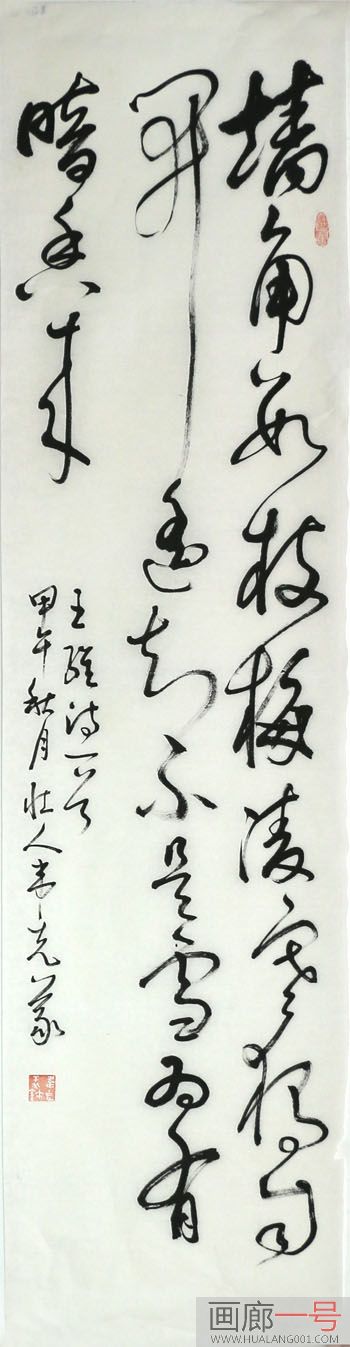 墙角数枝梅凌寒独自
开遥知不是雪为有
暗香来
王维诗一首
甲午秋月壮人韦克义
画廊一号
WWW.HUALANG001.COM